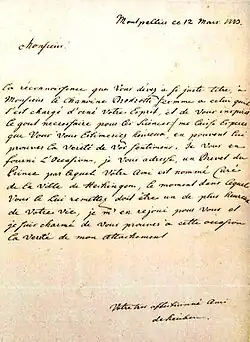 Montpellier ce 12 Mars
Monsieur
La reconnoissance que Vous devez a si juste titre, à
Monsieur le Chanoine comme a celui qui
s'est chargé d'orné Votre Esprit, et de Vous inspirer
le gout necessaire pour les Sciences me laisse Esperer
que Vous Vous Estimeriez heureux, en pouvant lui
prouver la Verité de Vos sentimens. Je Vous en
fourni l'Occasion, je Vous adresse, un Brevet du
Prince par lequel Votre Ami est nommé Curé
de la Ville de Hechingen, le moment dans lequel
Vous le Lui remettez doit être un de plus heureux
de Votre Vie, je m'en rejoui pour Vous et
je suis charmé de Vous prouver a cette occasion
la Verité de mon attachement
Votre tres affectionné Ami